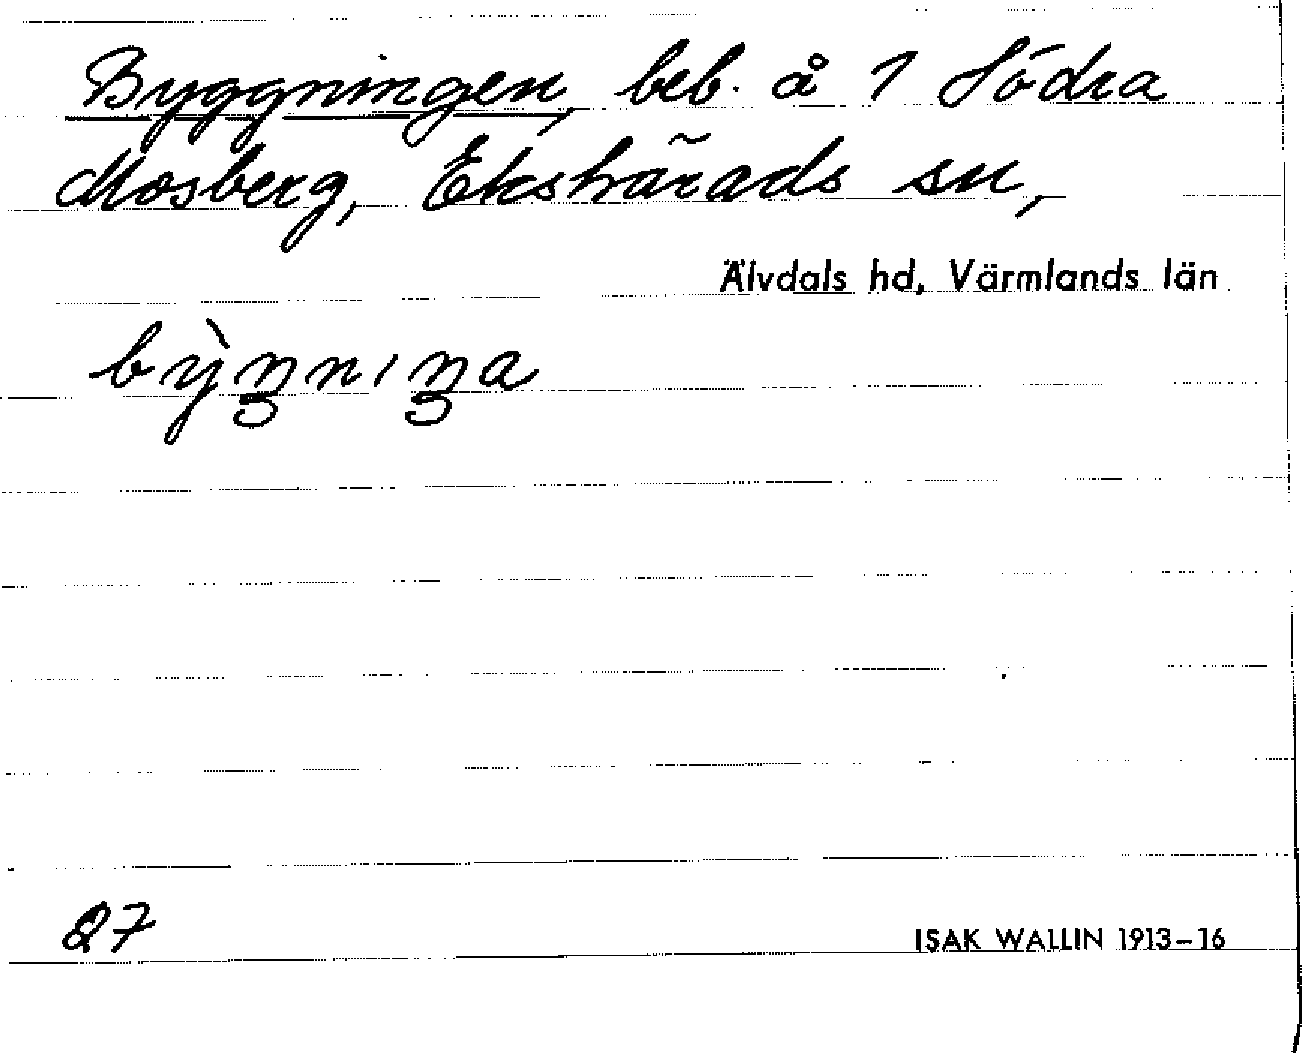 Byggningen, beb. å 1 Södra
Mosberg, Ekshärads sn,
Älvdals hd, Värmlands län
bỳŋnıŋa
27
ISAK WALLIN 1913–16